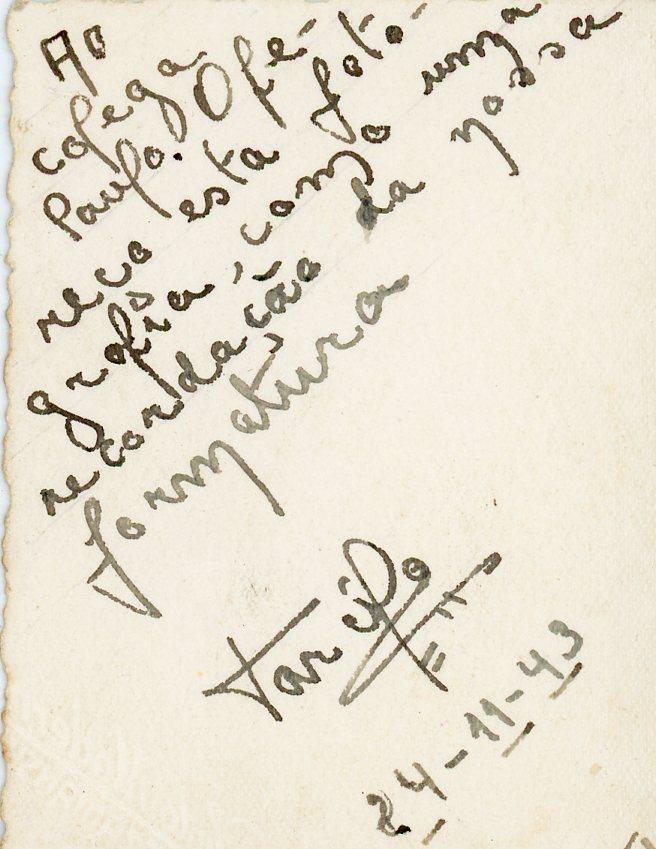 Ao
colega
Paulo. Ofe-
reco esta foto-
grafia, como uma
recordação da nossa
formatura
24-11-43